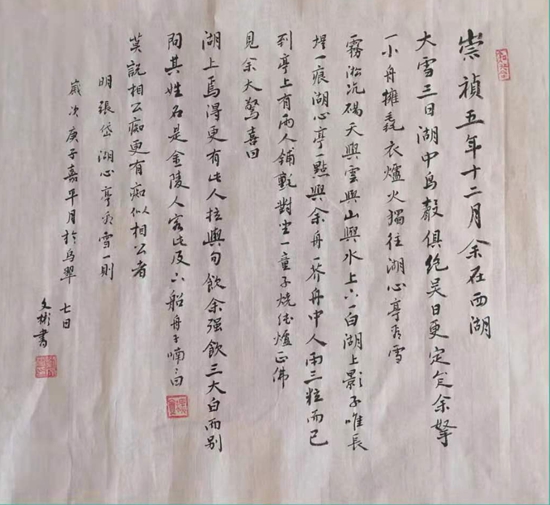 崇禎五年十二月余在西湖
大雪三日湖中鳥聲俱絕是日更定矣余拏
一小舟擁毳衣爐火獨往湖心亭看雪
霧淞沆碭天與雲與山與水上下一白湖上影子唯長
堤一痕湖心亭一點與余舟一芥舟中人兩三粒而已
到亭上有兩人鋪氈對坐一童子燒酒爐正沸
見余大驚喜曰
湖上焉得更有此人拉與同飲余強飲三大白而別
問其姓名是金陵人客此及下船舟子喃々曰
莫說相公痴更有痴似相公者
明張岱湖心亭看雪一則
歲次庚子嘉平月於烏翠 七日
文彬書